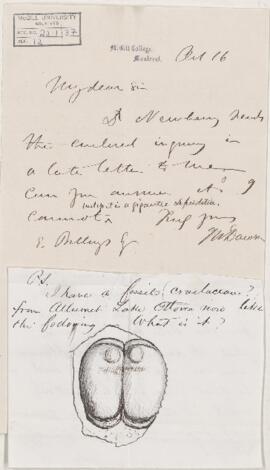 McGILL UNIVERSITY
ARCHIVES
ACC. NO.
REF.
McGill College,
Montreal.
Oct 16
My dear Sir
Dr Newberry sends
the enclosed inquiry in
a late letter to me
Can you answer it? I
unless it is a gigantic
cannot. Truly yours
E. Billings Esq JWDawson
P.S.
I have a fossil crustacean?
from Allumet Lake Ottawa now like
the following What is it?